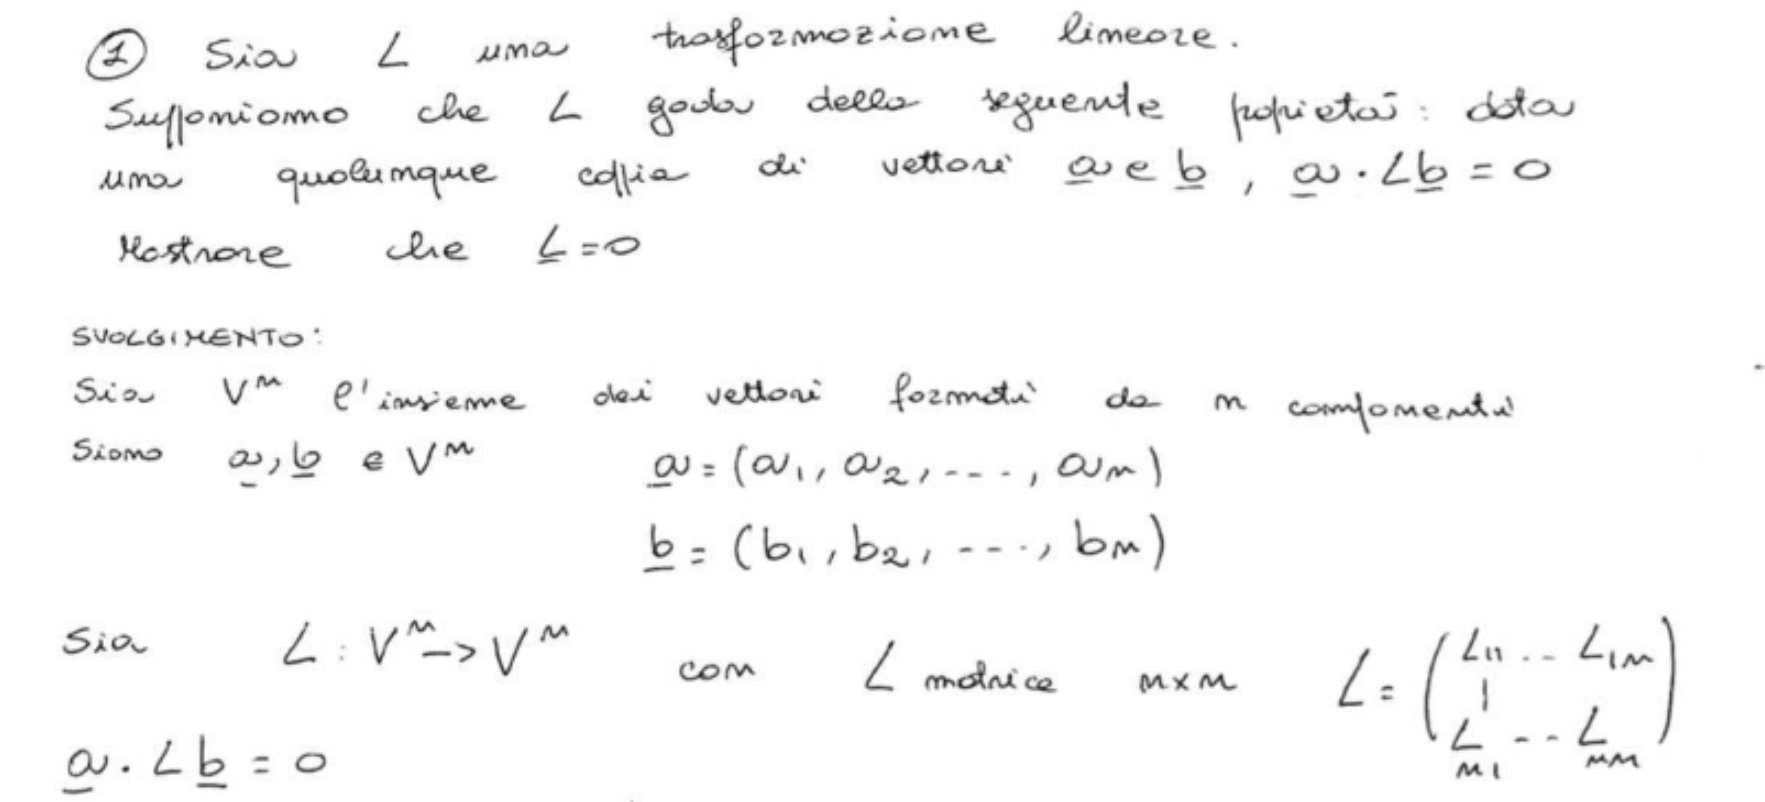 ① Sia L una trasformazione lineare.
Supponiamo che L goda della seguente popietà: data
una qualunque coppia di vettori a e b, a · Lb = 0
Mostrare che L = 0
SVOLGIMENTO:
Sia Vⁿ l'insieme dei vettori formati da n componenti
Siano a, b ∈ Vⁿ a = (a₁, a₂, ...., aₙ)
b = (b₁, b₂, ...., bₙ)
Sia L : Vⁿ -> Vⁿ con L matrice n×n L = (L₁₁ .. L₁ₙ
| 
Lₙ₁ .. Lₙₙ)
a · Lb = 0